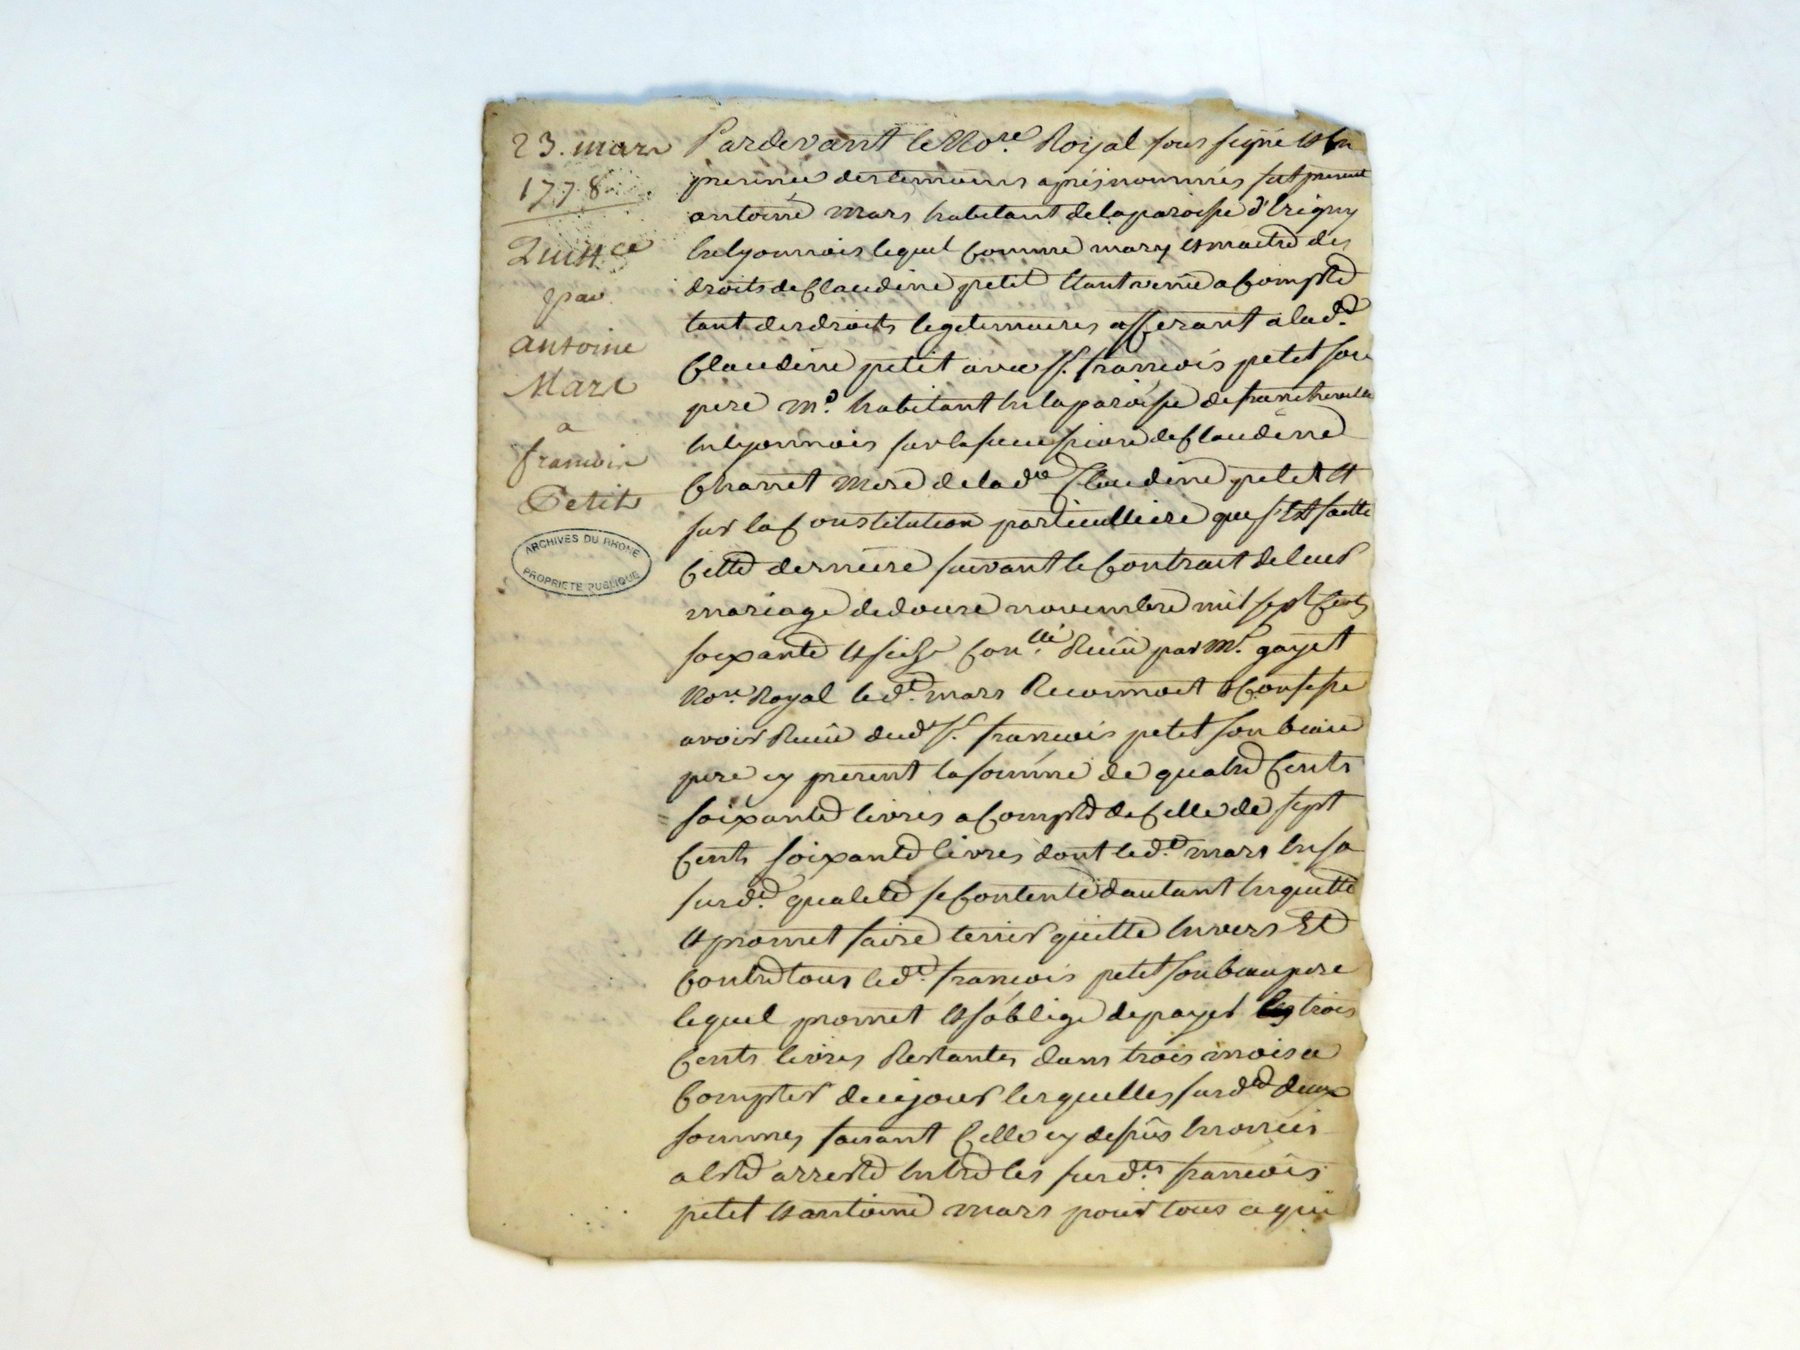 23. mars
1778
Quittce
par
antoine
Mars
a
francois
Petit
ARCHIVES DU RHONE
PROPRIETE PUBLIQUE
Pardevant le Nore. Royal sous signé et en
presence des temoins aprés nommés fut present
antoine mars habitant de la paroisse d'Irigny
en lyonnois lequel Comme mary et maitre des
droits de Claudine petit Etant venu a Compte
tant des droits legitimaires afferant a lad.e
Claudine petit avec Sr. francois petit son
pere md. habitant en la paroisse de francheville
en lyonnois sur la succession de Claudine
mere de la dte Claudine petit et
sur la Constitution particulliere que s'est faitte
Cette derniere suivant le Contrat de leur
mariage de douze novembre mil sept Cents
soixante et seize Conllé Reçu par Me. gayet
Nore Royal led.t mars Reconnoit et Confesse
avoir Reçu dud Sr. francois petit son beau
pere cy present la somme de quatre Cents
soixante livres a Compte de Celle de sept
Cents soixante livres dont led.t mars en sa
susd.e qualité se Contente dautant en quitte
et promet faire tenir quitte Envers Et
Contre tous led.t francois petit son beau pere
lequel promet et s'oblige de payer les trois
Cents livres Restantes dans trois mois a
Compter de ce jour lesquelles susdtes deux
sommes faisant Celle cy dessus Enoncée
a esté arresté Entre les susd.ts francois
petit et antoine mars pour tous ce qui